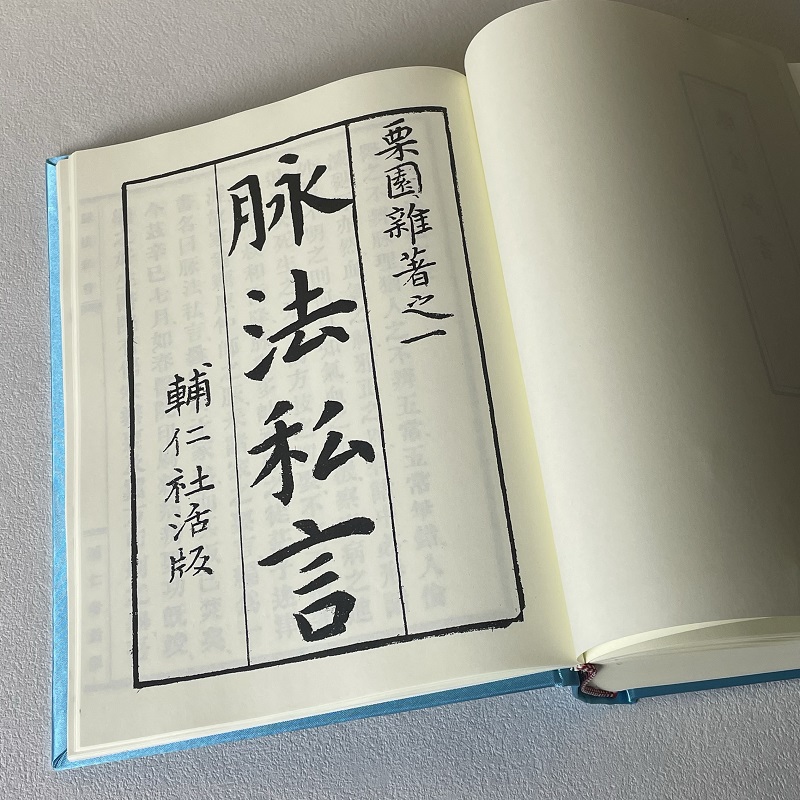 栗園雜著之一
脉法私言
輔仁社活版